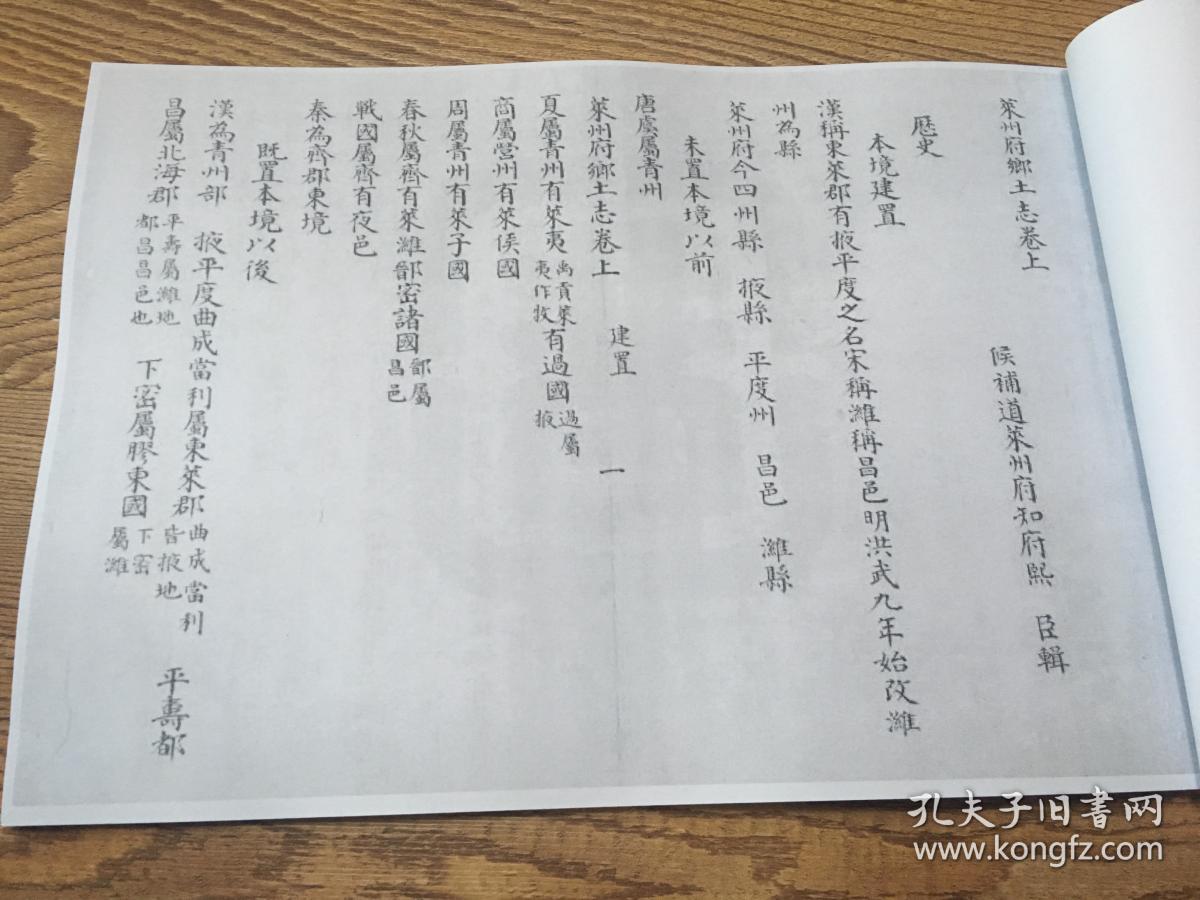 萊州府鄉土志卷上
候補道萊州府知府熙　臣輯
歷史
本境建置
漢稱東萊郡有掖平度之名宋稱濰稱昌邑明洪武九年始改濰
州為縣
萊州府今四州縣　掖縣　平度州　昌邑　濰縣
未置本境以前
唐虞屬青州
萊州府鄉土志卷上　建置　一
夏屬青州有萊夷禹貢萊夷作牧有過國過屬掖
商屬營州有萊侯國
周屬青州有萊子國
春秋屬齊有萊濰鄑密諸國鄑屬昌邑
戰國屬齊有夜邑
秦為齊郡東境
既置本境以後
漢為青州部　掖平度曲成當利屬東萊郡曲成當利皆掖地　平壽都
昌屬北海郡平壽屬濰地都昌昌邑也　下密屬膠東國下密屬濰
孔夫子旧书网
www.kongfz.com